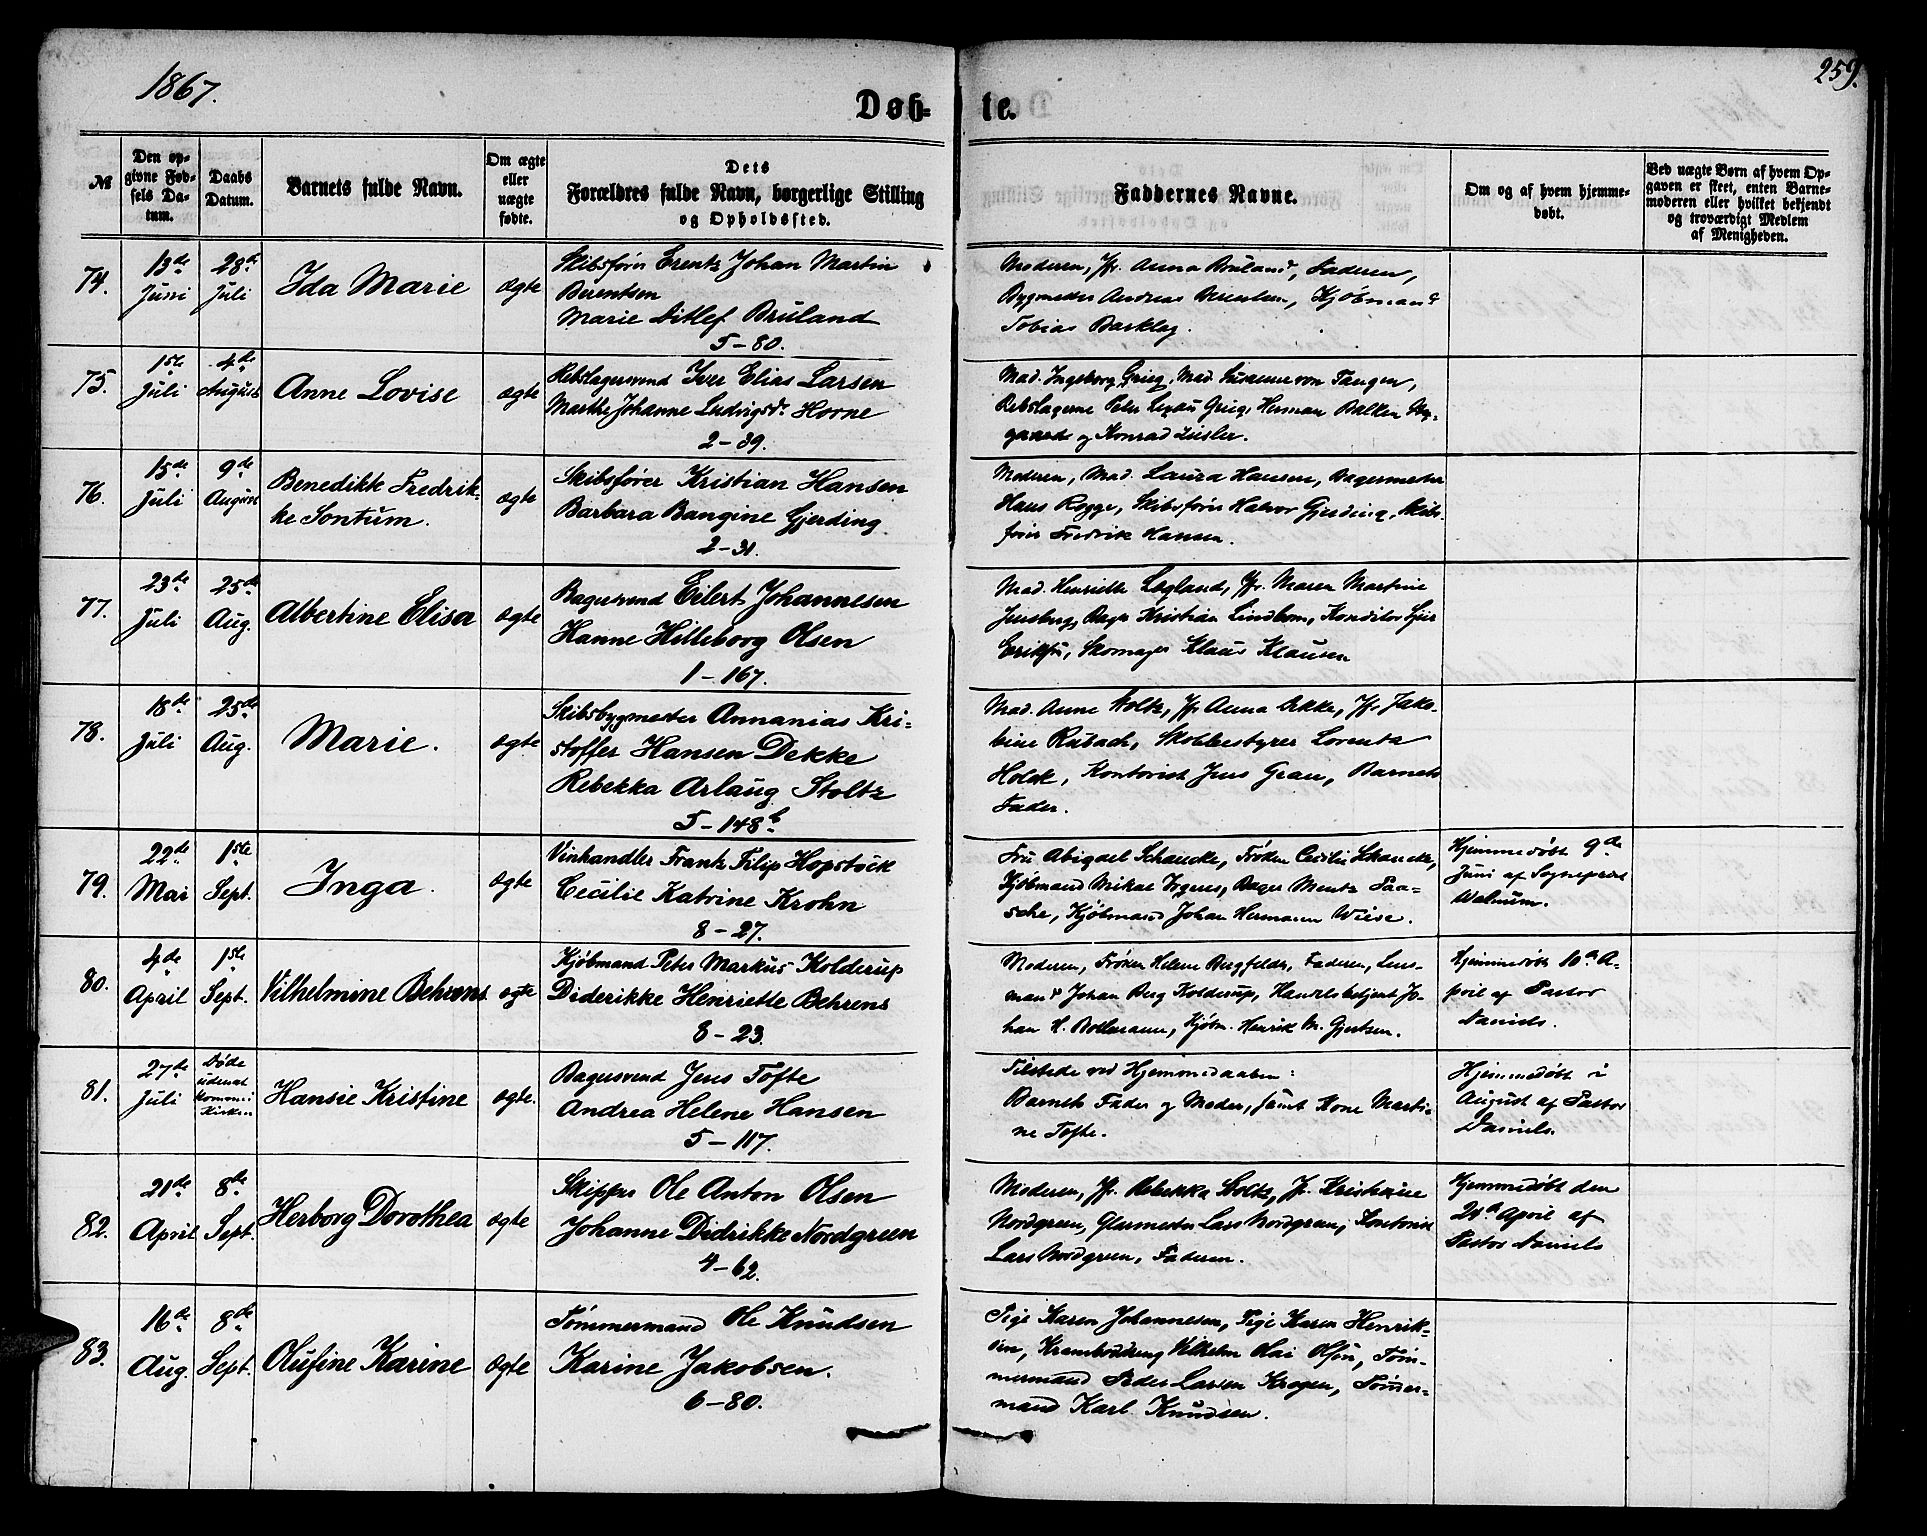 1867.
259.
Døb-
te.
№
Den op-
givne Fød-
sels Da-
tum.
Daabs
Datum.
Barnets fulde Navn.
Om ægte
eller
uægte
fødte.
Dets
Forældres fulde Navn, borgerlige Stilling
og Opholdssted.
Faddernes Navne.
Om og af hvem hjemme-
døbt.
Ved uægte Børn af hvem Op-
gaven er skeet, enten Barne-
moderen eller hvilket bekjendt
og troværdigt Medlem
af Menigheden.
74.
13de
Juni
28de
Juli
Ida Marie
ægte
Skibsfører Erentz Johan Martin
Berentsen
Marie Ditlef Bruland
5-80.
Moderen, Jfr. Anna Bruland, Faderen,
Bygmester Andreas Berentsen, Kjøbmand
Tobias Barklay.
75.
1ste
Juli
4de
August
Anne Lovise
ægte
Rebslagersvend Iver Elias Larsen
Marthe Johanne Ludvigsdr. Horne
2-39.
Mad. Ingeborg Grieg, Mad. Susanne von Tangen,
Rebslagerne Peter Grieg, Herman Balken
og Konrad
76.
15de
Juli
9de
August
Benedikke Fredrik-
ke Sontum.
ægte
Skibsfører Kristian Hansen
Barbara Bangine Gjerding
2-31.
Moderen, Mad. Laura Hansen, Bagermester
Hans Rogge, Skibsfører Halvor Gjerding, Skibs-
fører Fredrik Hansen.
77.
23de
Juli
25de
Aug.
Albertine Elisa
ægte
Bagersvend Eilert Johannesen
Hanne Hilleborg Olsen
1-167.
Mad. Henriette Legland, Jfr. Maren Martine
Jensberg, Bager Kristian Lindbom, Konditor
Eriksen, Skomager Klaus Klausen
78.
18de
Juli
25de
Aug.
Marie.
ægte
Skibsbygmester Annanias Kri-
stoffer Hansen Dekke
Rebekka Arlaug Stoltz
5-148b
Mad. Anne Stoltz, Jfr Anna Dekke, Jfr. Jako-
bine Rubach, Skolebestyrer Lorentz
Holck, Kontorist Jens Gran, Barnets
Fader.
79.
22de
Mai
1ste
Sept.
Inga.
ægte
Vinhandler Frantz Filip Hopstock
Cecilie Katrine Krohn
8-27.
Fru Abigael Schancke, Frøken Cecilie Schancke,
Kjøbmand Mikal Irgens, Bager Mentz Paa-
sche, Kjøbmand Johan Hermann Wiese.
Hjemmedøbt 9de
Juni af Sognepræst
Walnum.
80.
4de
April
1ste
Sept.
Vilhelmine Behrens
ægte
Kjøbmand Peter Markus Kolderup
Diderikke Henriette Behrens
8-23.
Moderen, Frøken Helene Bergfeldt, Faderen, Lens-
mand Johan Berg Kolderup, Handelsbetjent Jo-
han H. Bollmann, Kjøbm. Henrik M. Gjertsen.
Hjemmedøbt 10de A-
pril af Pastor
Daniels.
81.
27de
Juli
Døde
uden at
komme i
Kirken
Hansie Kristine
ægte.
Bagersvend Jens Tofte
Andrea Helene Hansen
5-117.
Tilstede ved Hjemmedaaben:
Barnets Fader og Moder, samt Kone Marti-
ne Tofte.
Hjemmedøbt i
August af Pastor
Daniels.
82.
21de
April
8de
Sept.
Herborg Dorothea
ægte
Skipper Ole Anton Olsen
Johanne Didrikke Nordgreen
4-62.
Moderen, Jfr. Rebekka Stoltz, Jfr. Kristiane
Nordgreen, Glarmester Lars Nordgreen, Kontorist
Lars Nordgreen, Faderen.
Hjemmedøbt den
24de April af
Pastor Daniels
83.
16de
Aug.
8de
Sept.
Olufine Karine
ægte
Tømmermand Ole Knudsen
Karine Jakobsen.
6-80.
Pige Karen Johannesen, Pige Karen Henrik-
sen, Krambodreng Vilhelm Olai Olsen, Tøm-
mermand Peder Larsen Krogen, Tømmer-
mand Karl Knudsen.